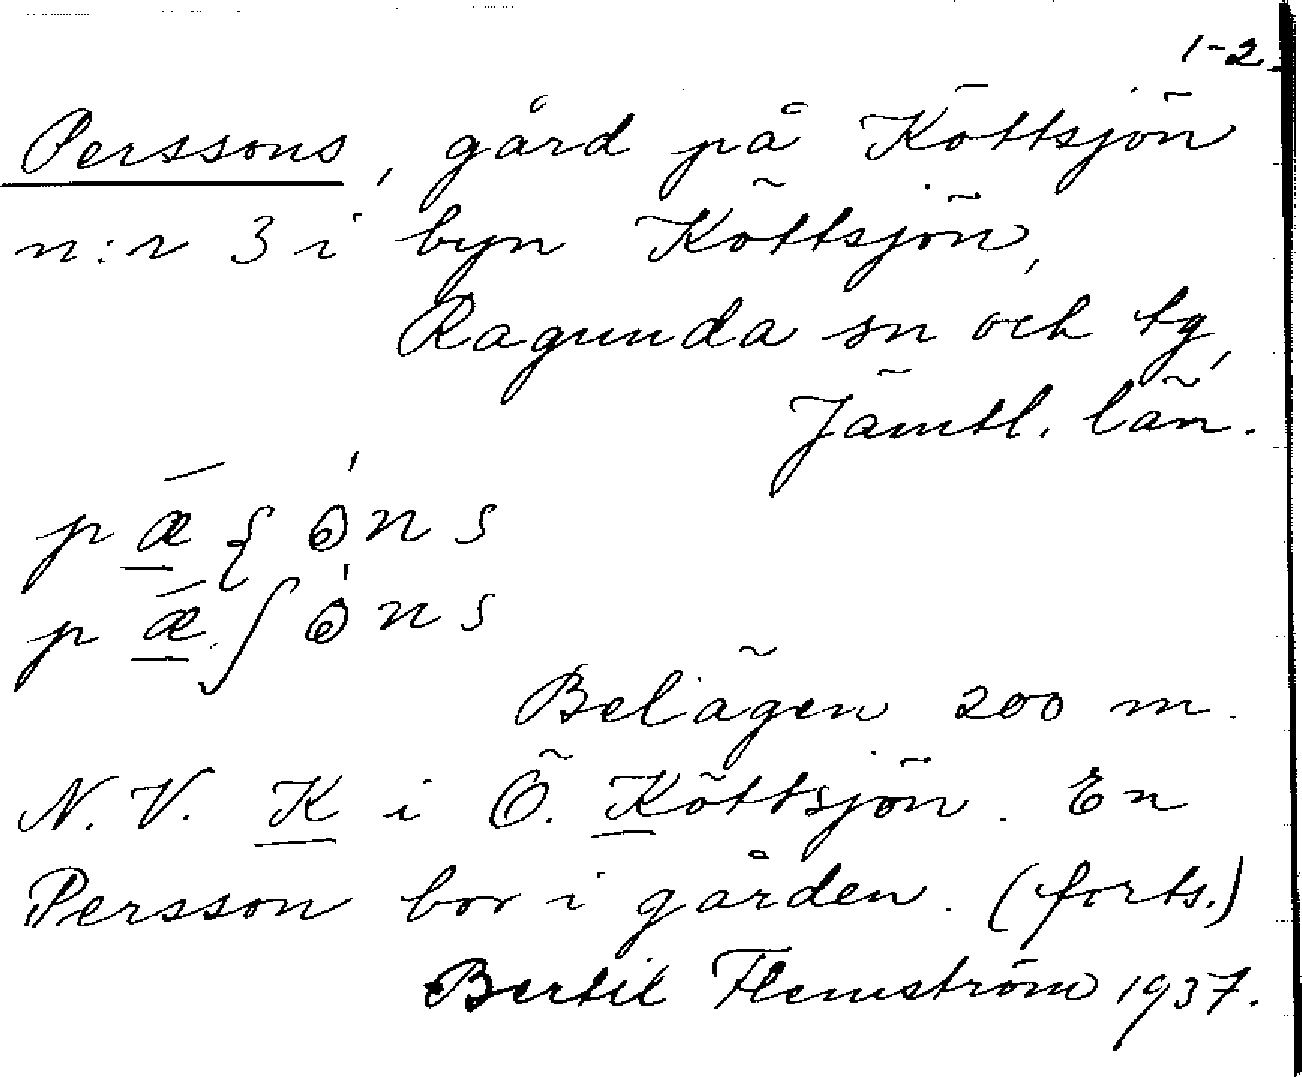 1-2
Perssons, gård på Köttsjön
n:r 3 i byn Köttsjön,
Ragunda sn och tg,
Jämtl. län.
Belägen 200 m.
N.V. K i Ö. Köttsjön. En
Persson bor i gården. (forts.)
Bertil Flemström 1937.